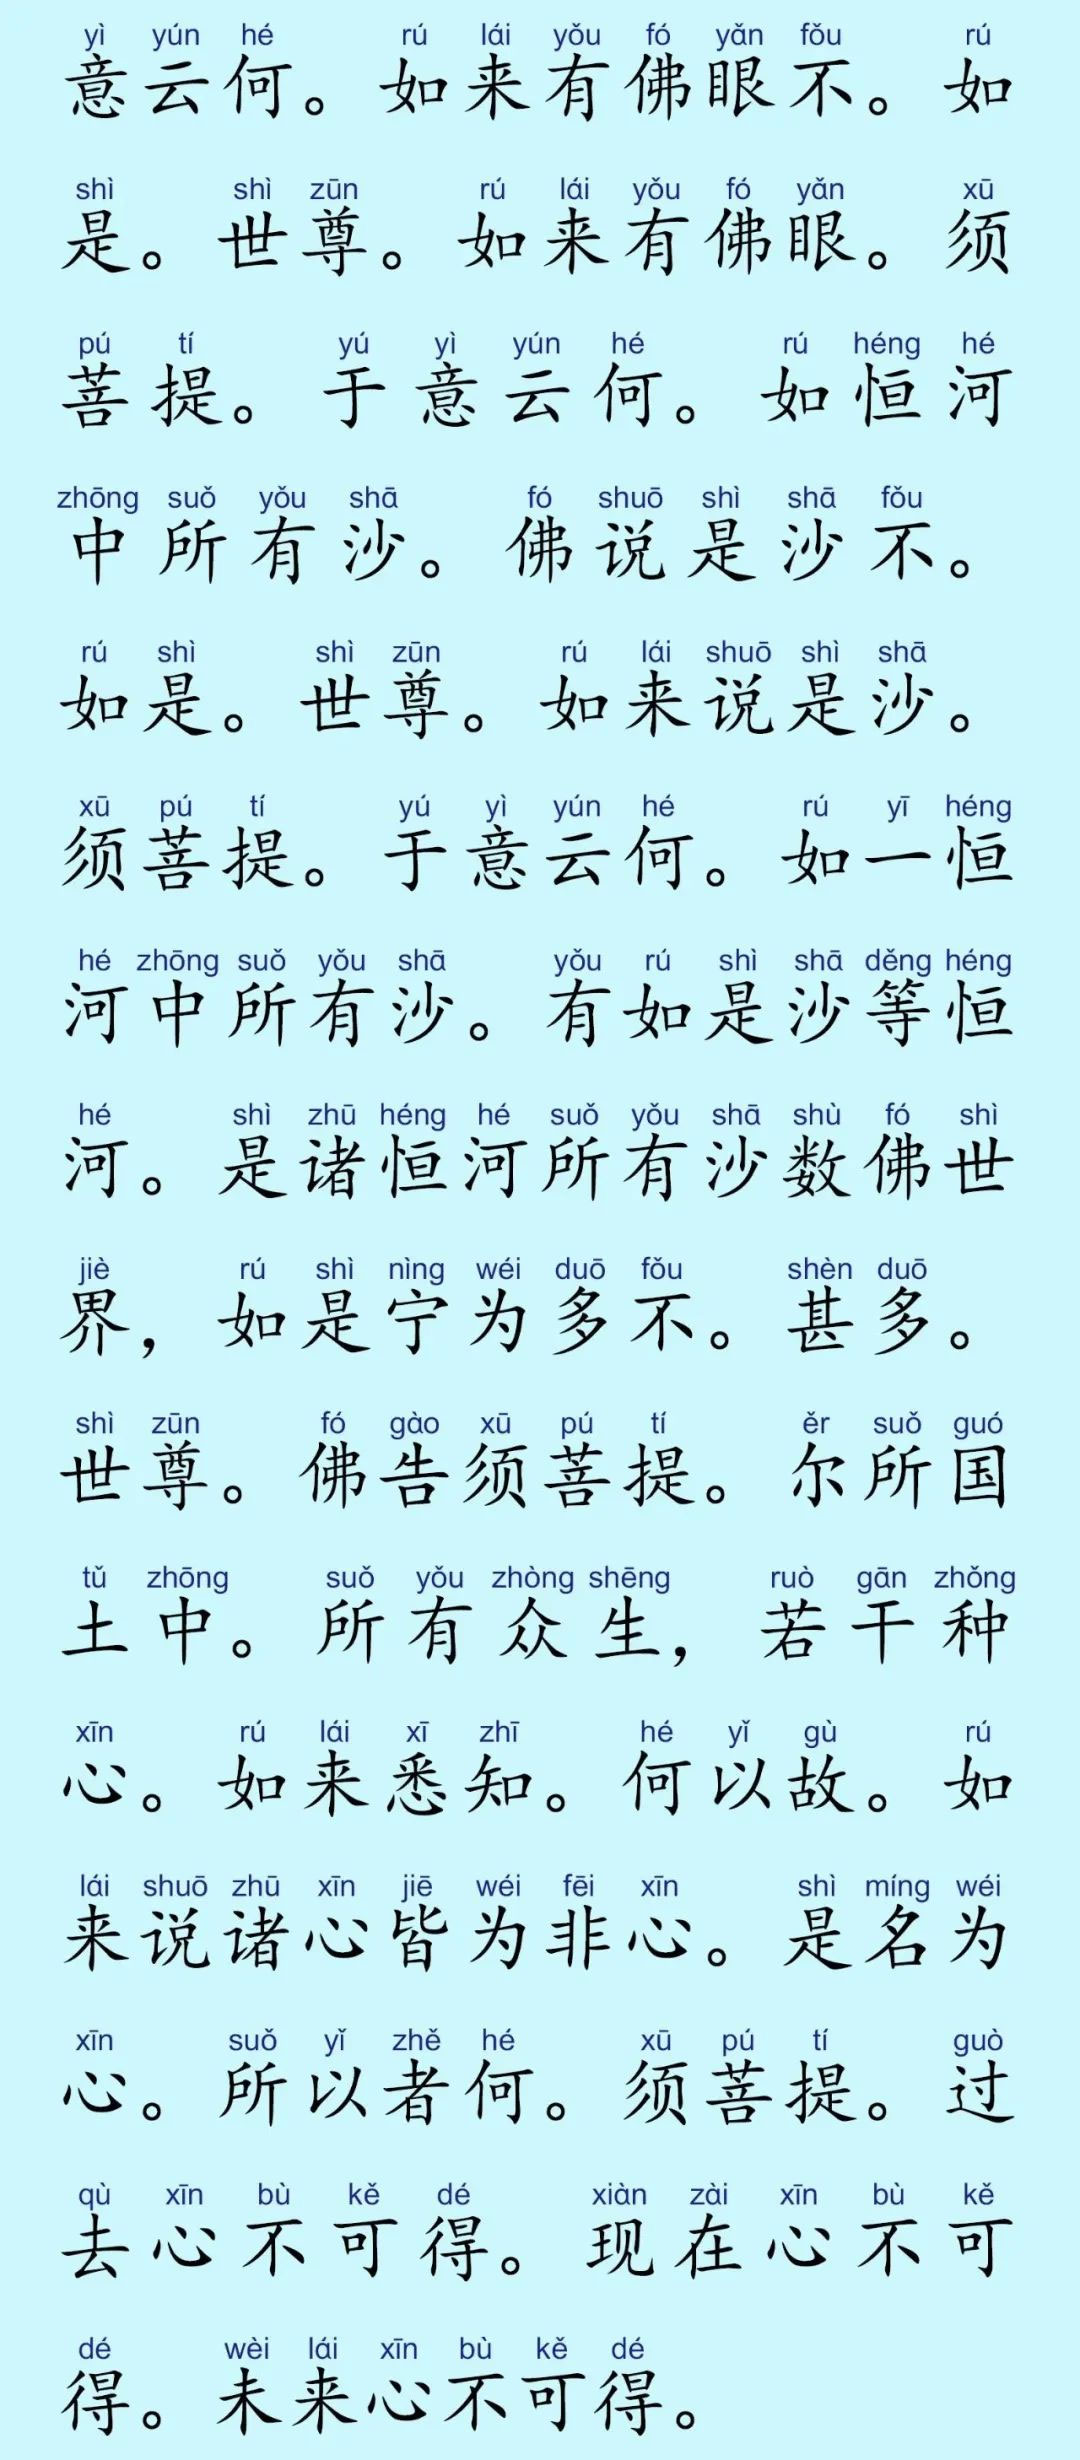 yì yún hé rú lái yǒu fó yǎn fǒu rú
意云何。如来有佛眼不。如
shì shì zūn rú lái yǒu fó yǎn xū
是。世尊。如来有佛眼。须
pú tí yú yì yún hé rú héng hé
菩提。于意云何。如恒河
zhōng suǒ yǒu shā fó shuō shì shā fǒu
中所有沙。佛说是沙不。
rú shì shì zūn rú lái shuō shì shā
如是。世尊。如来说是沙。
xū pú tí yú yì yún hé rú yī héng
须菩提。于意云何。如一恒
hé zhōng suǒ yǒu shā yǒu rú shì shā děng héng
河中所有沙。有如是沙等恒
hé shì zhū héng hé suǒ yǒu shā shù fó shì
河。是诸恒河所有沙数佛世
jiè rú shì nìng wéi duō fǒu shèn duō
界，如是宁为多不。甚多。
shì zūn fó gào xū pú tí ěr suǒ guó
世尊。佛告须菩提。尔所国
tǔ zhōng suǒ yǒu zhòng shēng ruò gān zhǒng
土中。所有众生，若干种
xīn rú lái xī zhī hé yǐ gù rú
心。如来悉知。何以故。如
lái shuō zhū xīn jiē wéi fēi xīn shì míng wéi
来说诸心皆为非心。是名为
xīn suǒ yǐ zhě hé xū pú tí guò
心。所以者何。须菩提。过
qù xīn bù kě dé xiàn zài xīn bù kě
去心不可得。现在心不可
dé wèi lái xīn bù kě dé
得。未来心不可得。